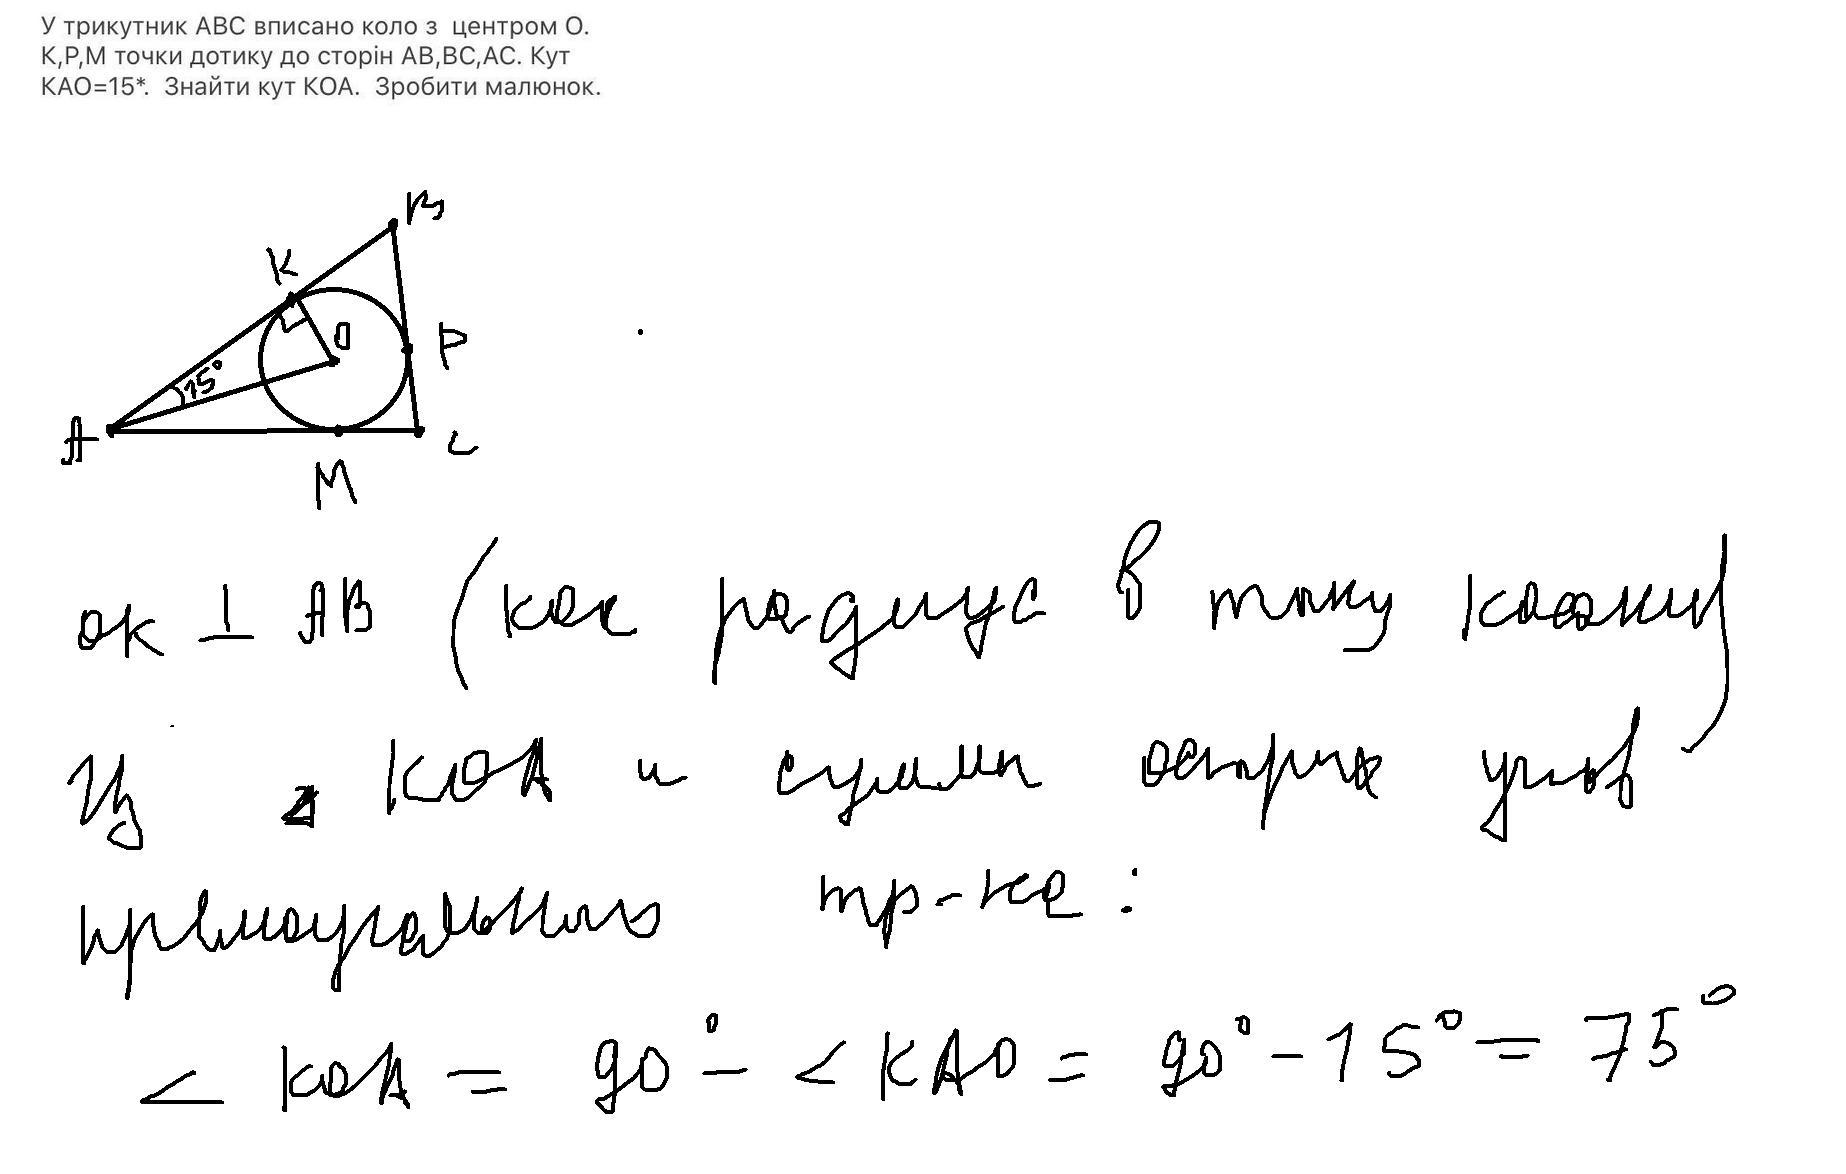 У трикутник АВС вписано коло з центром О.
К,Р,М точки дотику до сторін АВ,ВС,АС. Кут
КАО=15*. Знайти кут КОА. Зробити малюнок.
В
К
О
Р
15°
А
С
М
ОК ⊥ АВ (как радиус в точку касания)
Из ⊿ КОА и суммы острых углов
прямоугольного тр-ка:
< КОА = 90° - < КАО = 90° - 15° = 75°